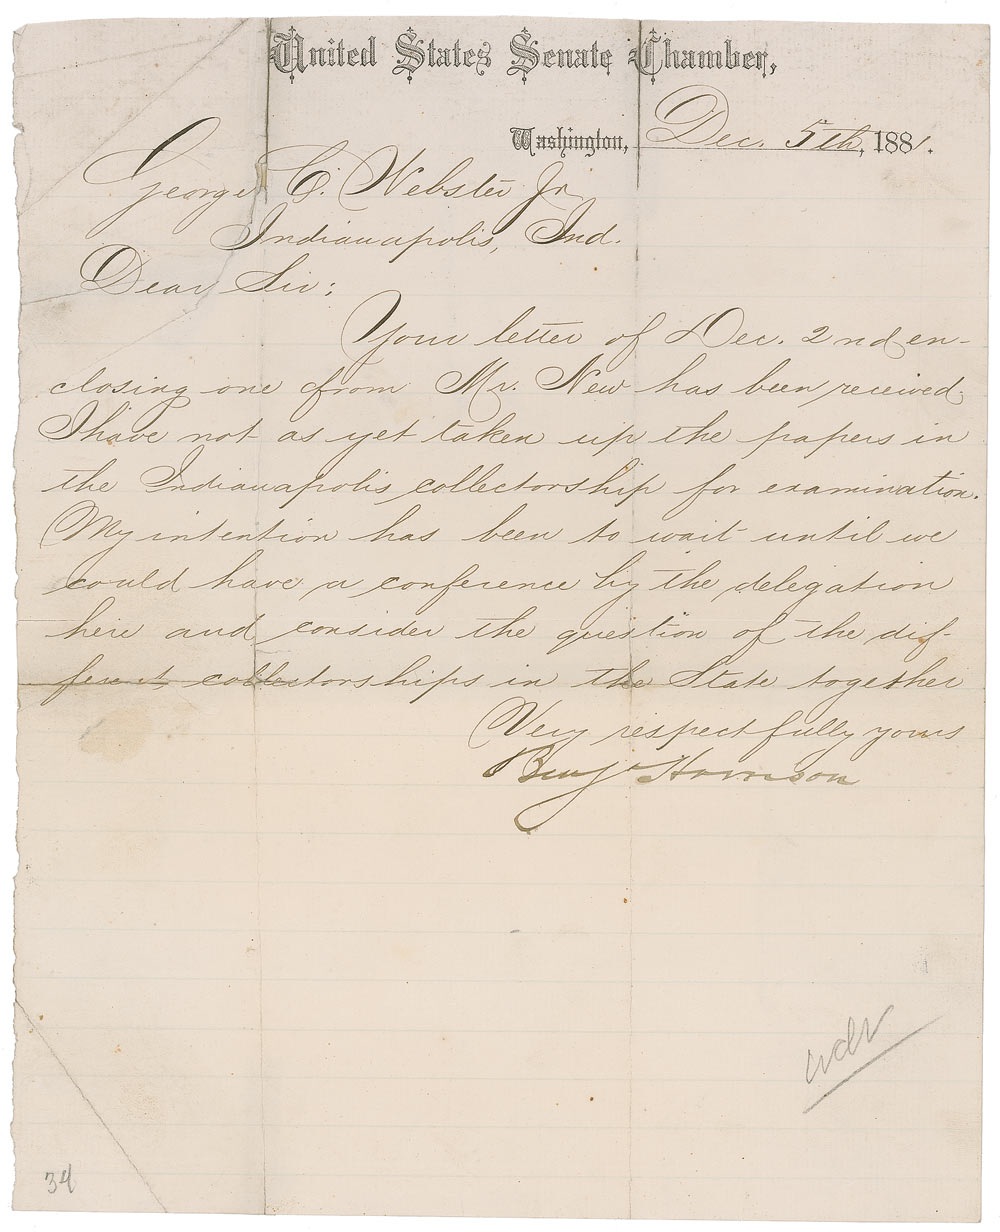 United States Senate Chamber,
Washington, Dec. 5th, 1881.
George C. Webster Jr
Indianapolis, Ind.
Dear Sir:
Your letter of Dec. 2nd en-
closing one from Mr. New has been received.
I have not as yet taken up the papers in
the Indianapolis collectorship for examination.
My intention has been to wait until we
could have a conference by the delegation
here and consider the question of the dif-
ferent collectorships in the State together
Very respectfully yours
Benj Harrison
34